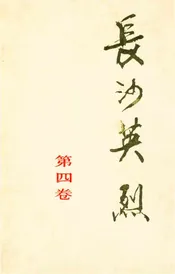 長沙英烈
第四卷